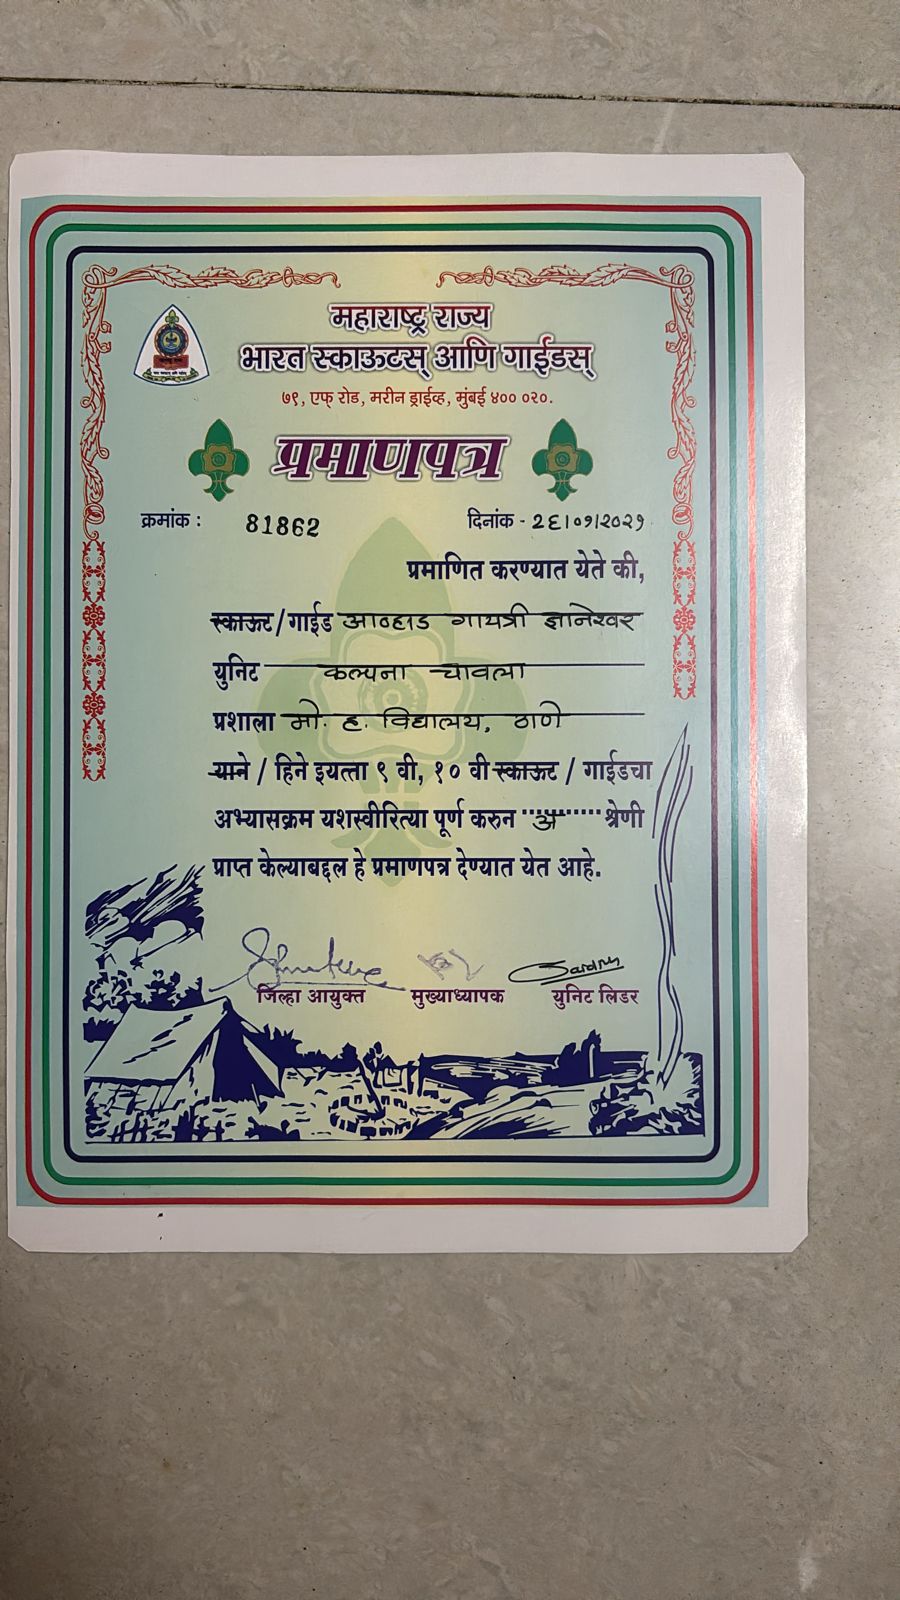 महाराष्ट्र राज्य
भारत स्काऊटस् आणि गाईडस्
७९, एफ् रोड, मरीन ड्राईव्ह, मुंबई ४०० ०२०.
प्रमाणपत्र
क्रमांक : 81862 दिनांक - २६/०१/२०२१
प्रमाणित करण्यात येते की,
स्काऊट/गाईड आव्हाड गायत्री ज्ञानेश्वर
युनिट कल्पना चावला
प्रशाला मो. ह. विद्यालय, ठाणे
याने / हिने इयत्ता ९ वी, १० वी स्काऊट / गाईडचा
अभ्यासक्रम यशस्वीरित्या पूर्ण करुन अ श्रेणी
प्राप्त केल्याबद्दल हे प्रमाणपत्र देण्यात येत आहे.
जिल्हा आयुक्त मुख्याध्यापक युनिट लिडर